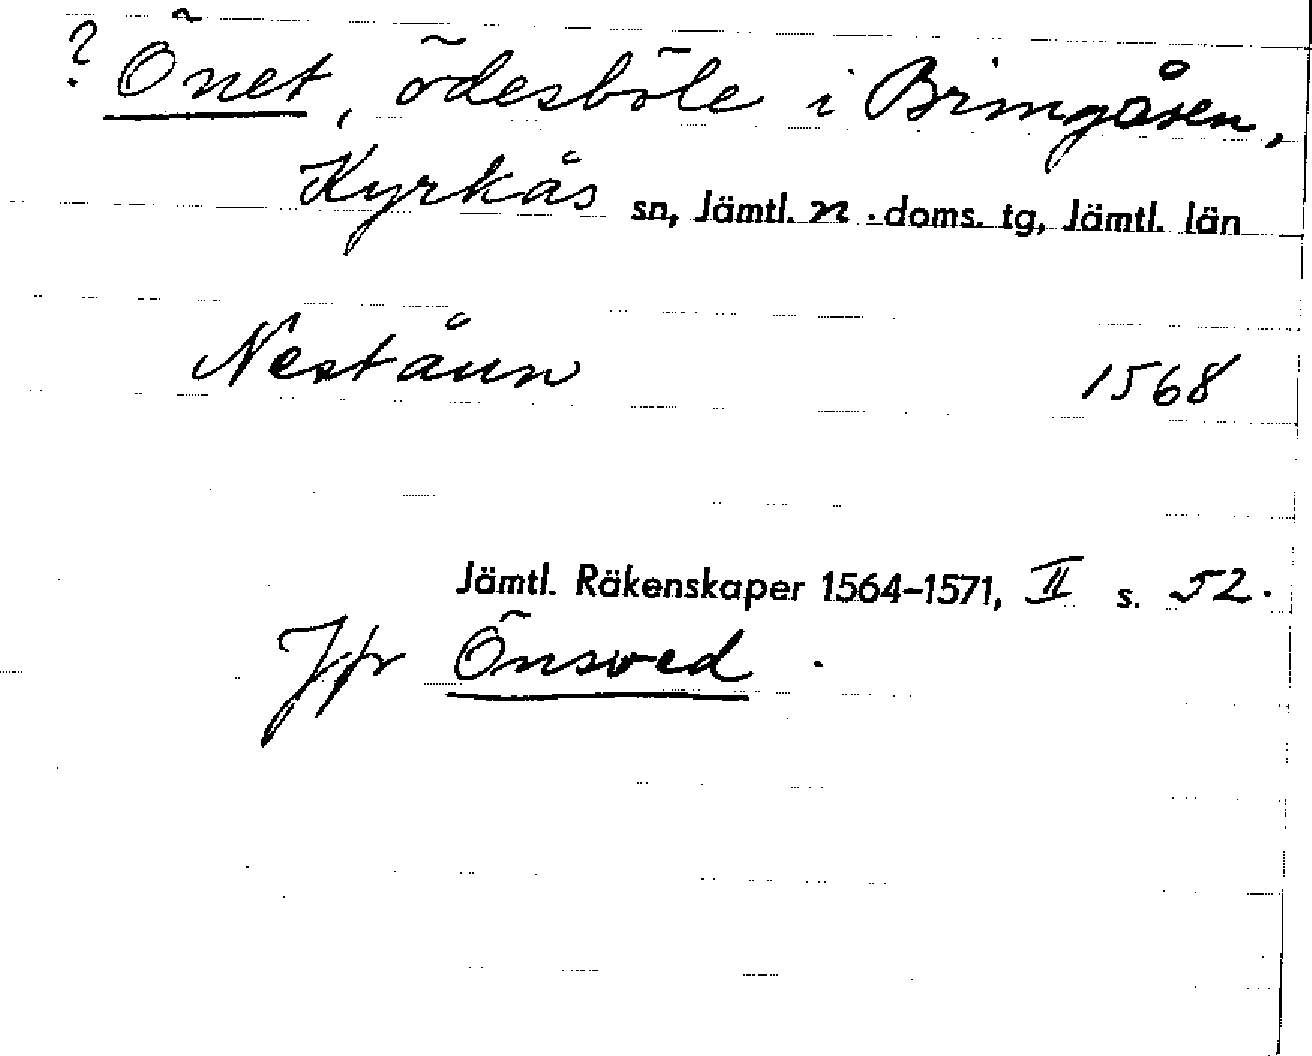 ? Önet, ödesböle i Bringåsen,
Kyrkås sn, Jämtl. n. doms. tg, Jämtl. län
Neståun 1568
Jämtl. Räkenskaper 1564–1571, II s. 52.
Jfr Önsved.